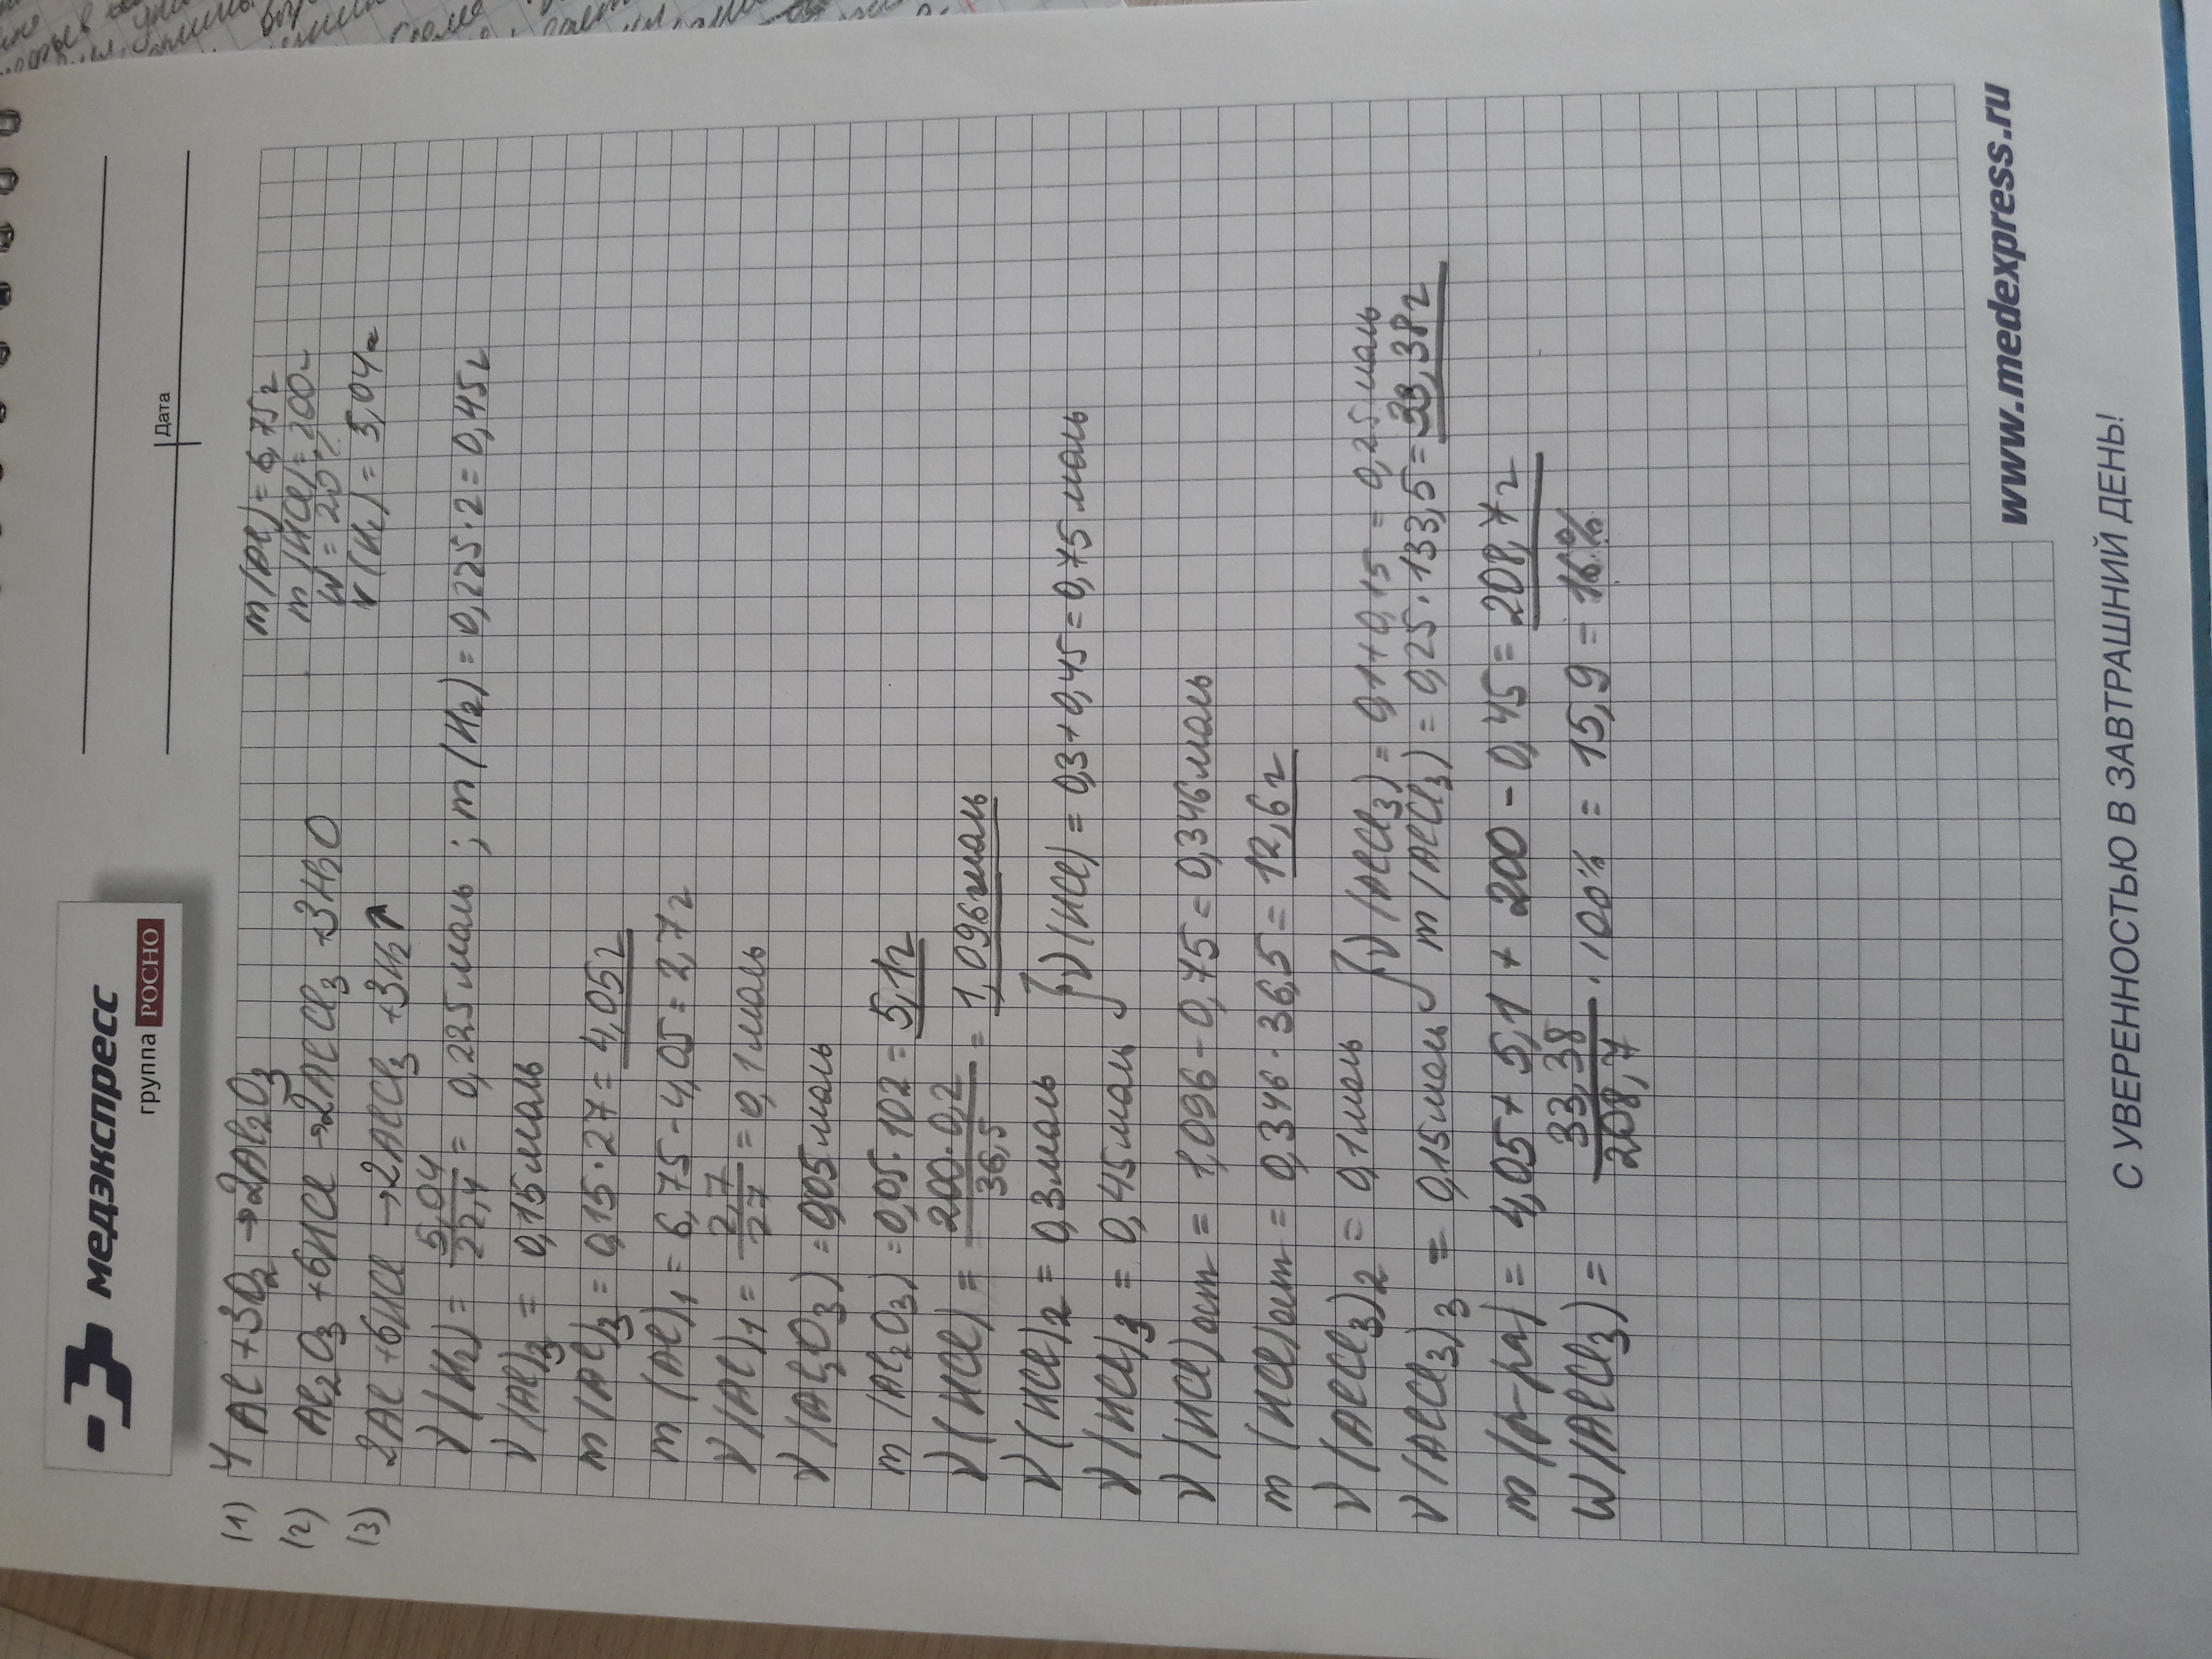 медэкспресс
группа РОСНО
Дата
(1) 4Al + 3O₂ → 2Al₂O₃
m(Al) = 6,75г
(2) Al₂O₃ + 6HCl → 2AlCl₃ + 3H₂O
m(HCl) = 200г
w = 20%
(3) 2Al + 6HCl → 2AlCl₃ + 3H₂↑
V(H₂) = 5,04л
ν(H₂) = 5,04/22,4 = 0,225моль ; m(H₂) = 0,225·2 = 0,45г
ν(Al)₃ = 0,15моль
m(Al)₃ = 0,15·27 = 4,05г
m(Al)₁ = 6,75 - 4,05 = 2,7г
ν(Al)₁ = 2,7/27 = 0,1моль
ν(Al₂O₃) = 0,05моль
m(Al₂O₃) = 0,05·102 = 5,1г
ν(HCl) = 200·0,2/36,5 = 1,096моль
ν(HCl)₂ = 0,3моль
ν(HCl)₃ = 0,45моль
ν(HCl) = 0,3 + 0,45 = 0,75моль
ν(HCl)ост = 1,096 - 0,75 = 0,346моль
m(HCl)ост = 0,346·36,5 = 12,6г
ν(AlCl₃)₂ = 0,1моль
ν(AlCl₃)₃ = 0,15моль
ν(AlCl₃) = 0,1 + 0,15 = 0,25моль
m(AlCl₃) = 0,25·133,5 = 33,38г
m(р-ра) = 4,05 + 5,1 + 200 - 0,45 = 208,7г
w(AlCl₃) = 33,38/208,7 · 100% = 15,9 = 16%
www.medexpress.ru
С УВЕРЕННОСТЬЮ В ЗАВТРАШНИЙ ДЕНЬ!